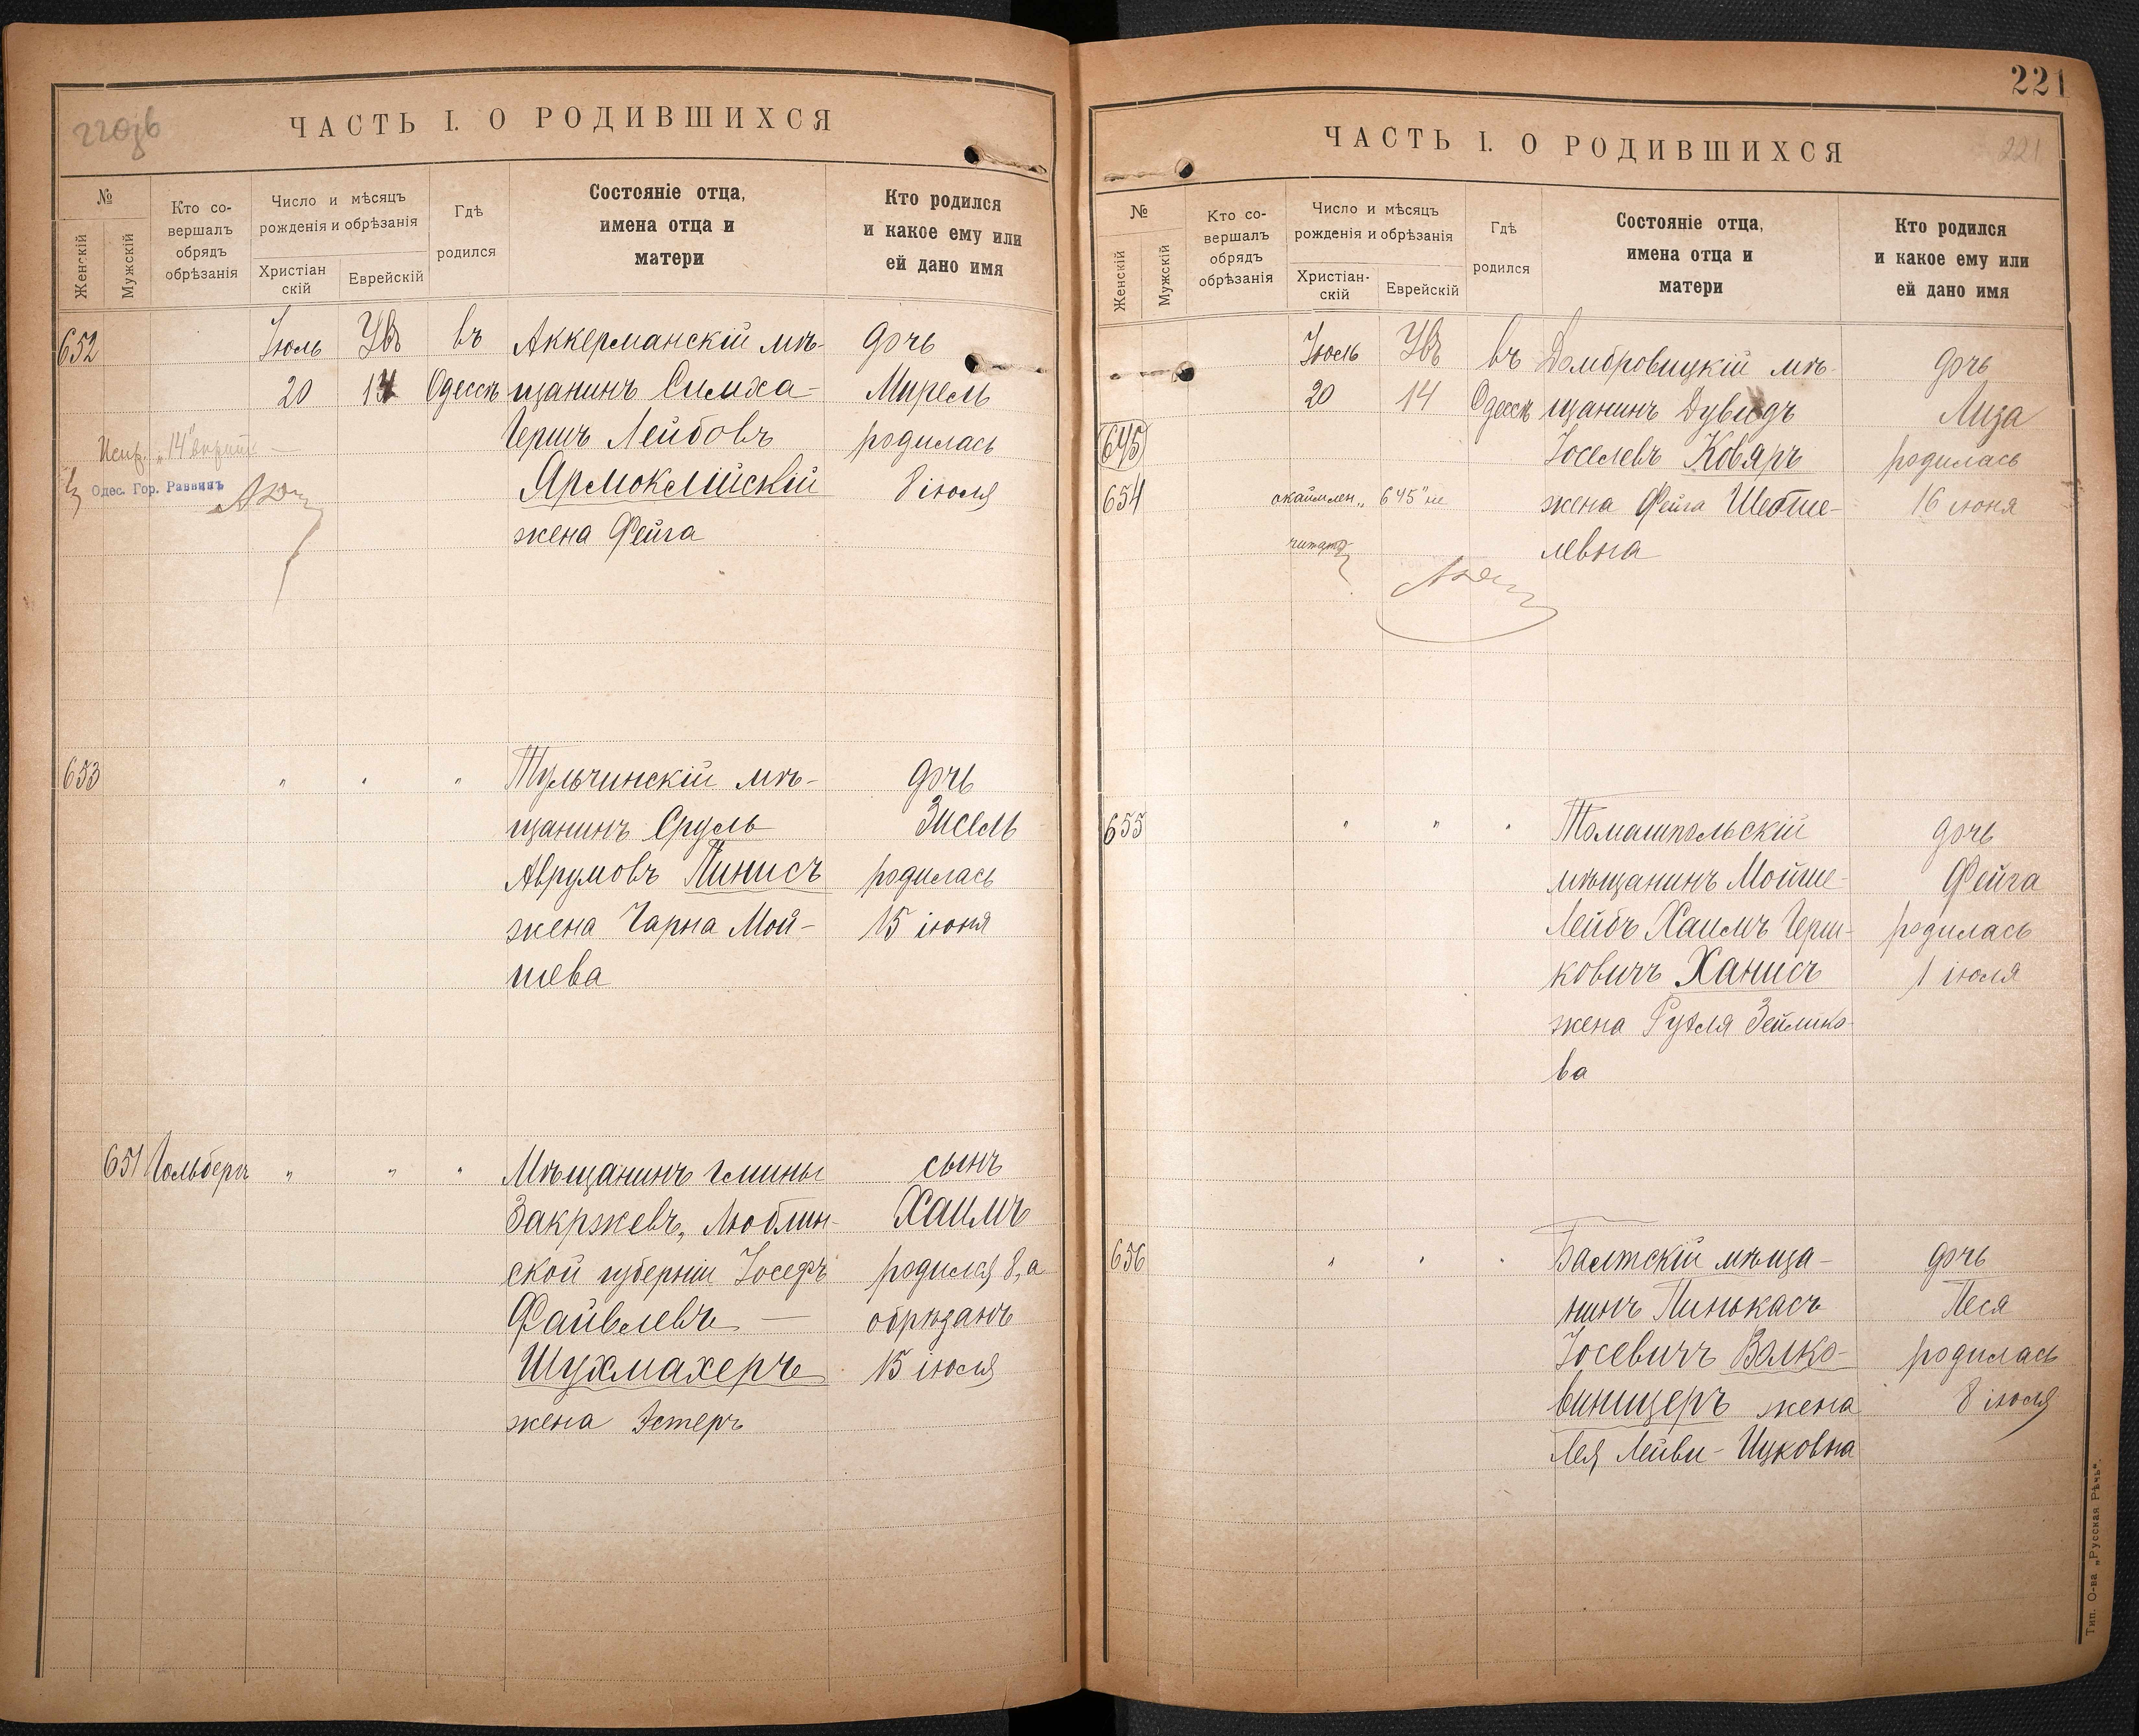 220зв
ЧАСТЬ I. О РОДИВШИХСЯ
№
Женскій
Мужскій
Кто со-
вершалъ
обрядъ
обрѣзанія
Число и мѣсяцъ
рожденія и обрѣзанія
Христіан
скій
Еврейскій
Гдѣ
родился
Состояніе отца,
имена отца и
матери
Кто родился
и какое ему или
ей дано имя
652 Іюль Ѳвъ въ Аккерманскій мѣ- дочь
20 14 Одессѣ щанинъ Симха- Мирель
Гершъ Лейбовъ родилась
Ярмоклійскій 8 іюля
жена Фейга
Испр. „14" вѣрить
Одес. Гор. Раввинъ
653 " " " Тульчинскій мѣ- дочь
щанинъ Сруль Зисель
Аврумовъ Пинисъ родилась
жена Чарна Мой- 15 іюня
шева
651 Гольбергъ " " " Мѣщанинъ гмины сынъ
Закржевъ, Люблин- Хаимъ
ской губерніи Іосефъ родился 8, а
Файвлевъ — обрѣзанъ
Шухмахеръ 15 іюля
жена Эстеръ
221
ЧАСТЬ I. О РОДИВШИХСЯ
221
№
Женскій
Мужскій
Кто со-
вершалъ
обрядъ
обрѣзанія
Число и мѣсяцъ
рожденія и обрѣзанія
Христіан-
скій
Еврейскій
Гдѣ
родился
Состояніе отца,
имена отца и
матери
Кто родился
и какое ему или
ей дано имя
Іюль въ Домбровицкій мѣ- дочь
20 14 Одессѣ щанинъ Дувидъ Лиза
645 Іоселевъ Ковяръ родилась
654 окаймлен. „645" не жена Фейга Шебше- 16 іюня
читать левна
655 " " " Томашпольскій дочь
мѣщанинъ Мойше- Фейга
Лейбъ Хаимъ Герш- родилась
ковичъ Ханисъ 1 іюля
жена Рухля Зейлико-
ва
656 " " " Балтскій мѣща- дочь
нинъ Пинькасъ Песя
Іосевичъ Волко- родилась
виницеръ жена 8 іюля
Лея Лейви-Ицковна
Тип. О-ва „Русская Рѣчь".